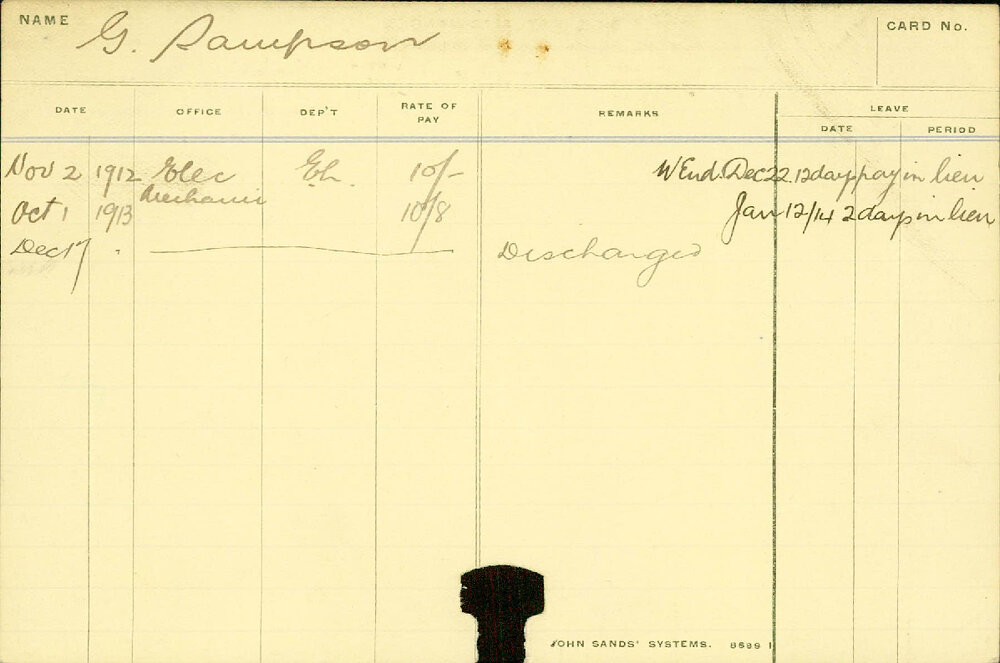 NAME G. Sampson
CARD No.
DATE OFFICE DEP'T RATE OF PAY REMARKS LEAVE
DATE PERIOD
Nov 2 1912 Elec El. 10/- W End. Dec 22. 12 day pay in lieu
Mechanic
Oct 1 1913 10/8 Jan 12/14 2 days in lieu
Dec 17 . Discharged
JOHN SANDS' SYSTEMS. 8699 1